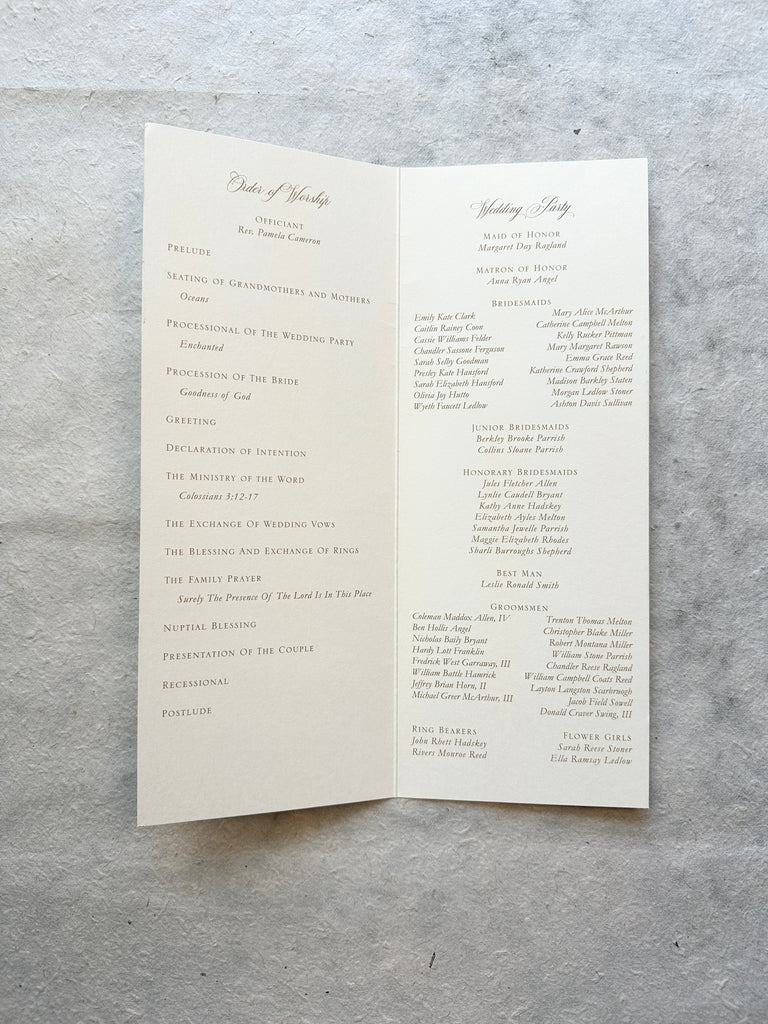 Order of Worship
Officiant
Rev. Pamela Cameron
Prelude
Seating of Grandmothers and Mothers
Oceans
Processional Of The Wedding Party
Enchanted
Procession Of The Bride
Goodness of God
Greeting
Declaration of Intention
The Ministry of the Word
Colossians 3:12-17
The Exchange Of Wedding Vows
The Blessing And Exchange Of Rings
The Family Prayer
Surely The Presence Of The Lord Is In This Place
Nuptial Blessing
Presentation Of The Couple
Recessional
Postlude
Wedding Party
Maid of Honor
Margaret Day Ragland
Matron of Honor
Anna Ryan Angel
Bridesmaids
Emily Kate Clark
Caitlin Rainey Coon
Cassie Williams Felder
Chandler Sassone Ferguson
Sarah Selby Goodman
Presley Kate Hansford
Sarah Elizabeth Hansford
Olivia Joy Hutto
Wyeth Faucett Ledlow
Mary Alice McArthur
Catherine Campbell Melton
Kelly Rucker Pittman
Mary Margaret Rawson
Emma Grace Reed
Katherine Crawford Shepherd
Madison Barkley Staten
Morgan Ledlow Stoner
Ashton Davis Sullivan
Junior Bridesmaids
Berkley Brooke Parrish
Collins Sloane Parrish
Honorary Bridesmaids
Jules Fletcher Allen
Lynlie Caudell Bryant
Kathy Anne Hadskey
Elizabeth Ayles Melton
Samantha Jewelle Parrish
Maggie Elizabeth Rhodes
Sharli Burroughs Shepherd
Best Man
Leslie Ronald Smith
Groomsmen
Coleman Maddox Allen, IV
Ben Hollis Angel
Nicholas Baily Bryant
Hardy Lott Franklin
Fredrick West Garraway, III
William Battle Hamrick
Jeffrey Brian Horn, II
Michael Greer McArthur, III
Trenton Thomas Melton
Christopher Blake Miller
Robert Montana Miller
William Stone Parrish
Chandler Reese Ragland
William Campbell Coats Reed
Layton Langston Scarbrough
Jacob Field Sowell
Donald Craver Swing, III
Ring Bearers
John Rhett Hadskey
Rivers Monroe Reed
Flower Girls
Sarah Reese Stoner
Ella Ramsay Ledlow